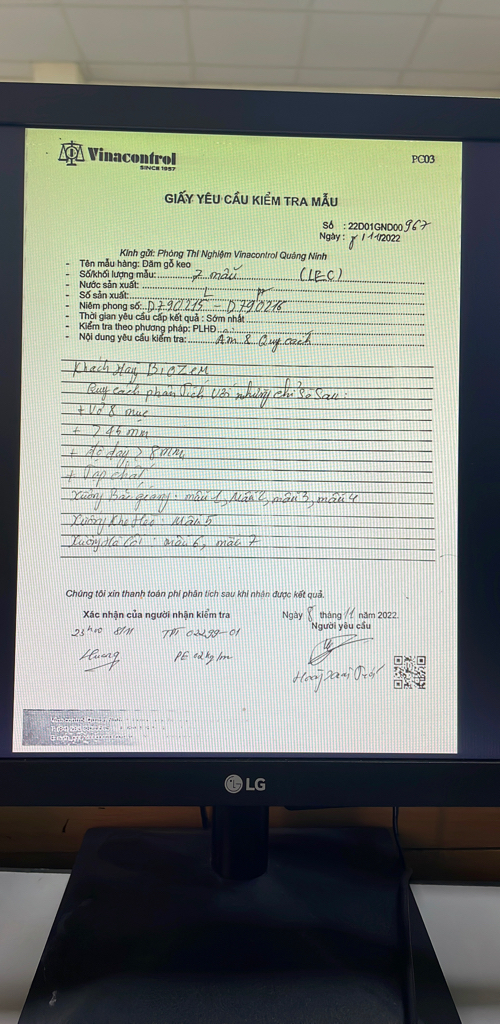 Vinacontrol
SINCE 1957
PC03
GIẤY YÊU CẦU KIỂM TRA MẪU
Số : 22D01GND00967
Ngày : 8/11/2022
Kính gửi: Phòng Thí Nghiệm Vinacontrol Quảng Ninh
- Tên mẫu hàng: Dăm gỗ keo
- Số/khối lượng mẫu: 7 mẫu (LEC)
- Nước sản xuất:
- Số sản xuất:
- Niêm phong số: D790215 - D790216
- Thời gian yêu cầu cấp kết quả : Sớm nhất
- Kiểm tra theo phương pháp: PLHĐ
- Nội dung yêu cầu kiểm tra: Ẩm & Quy cách
Khách Hàng BIOZEM
Quy cách phân tích với những chỉ số sau:
+ Vỏ & mục
+ > 45 mm
+ độ dày > 8mm
+ Tạp chất
Xưởng Bắc giang: mẫu 1, mẫu 2, mẫu 3, mẫu 4
Xưởng : Mẫu 5
Xưởng : mẫu 6, mẫu 7
Chúng tôi xin thanh toán phí phân tích sau khi nhận được kết quả.
Xác nhận của người nhận kiểm tra
Ngày 8 tháng 11 năm 2022.
Người yêu cầu
23h00 8/11 02299-01
Huong PE
LG